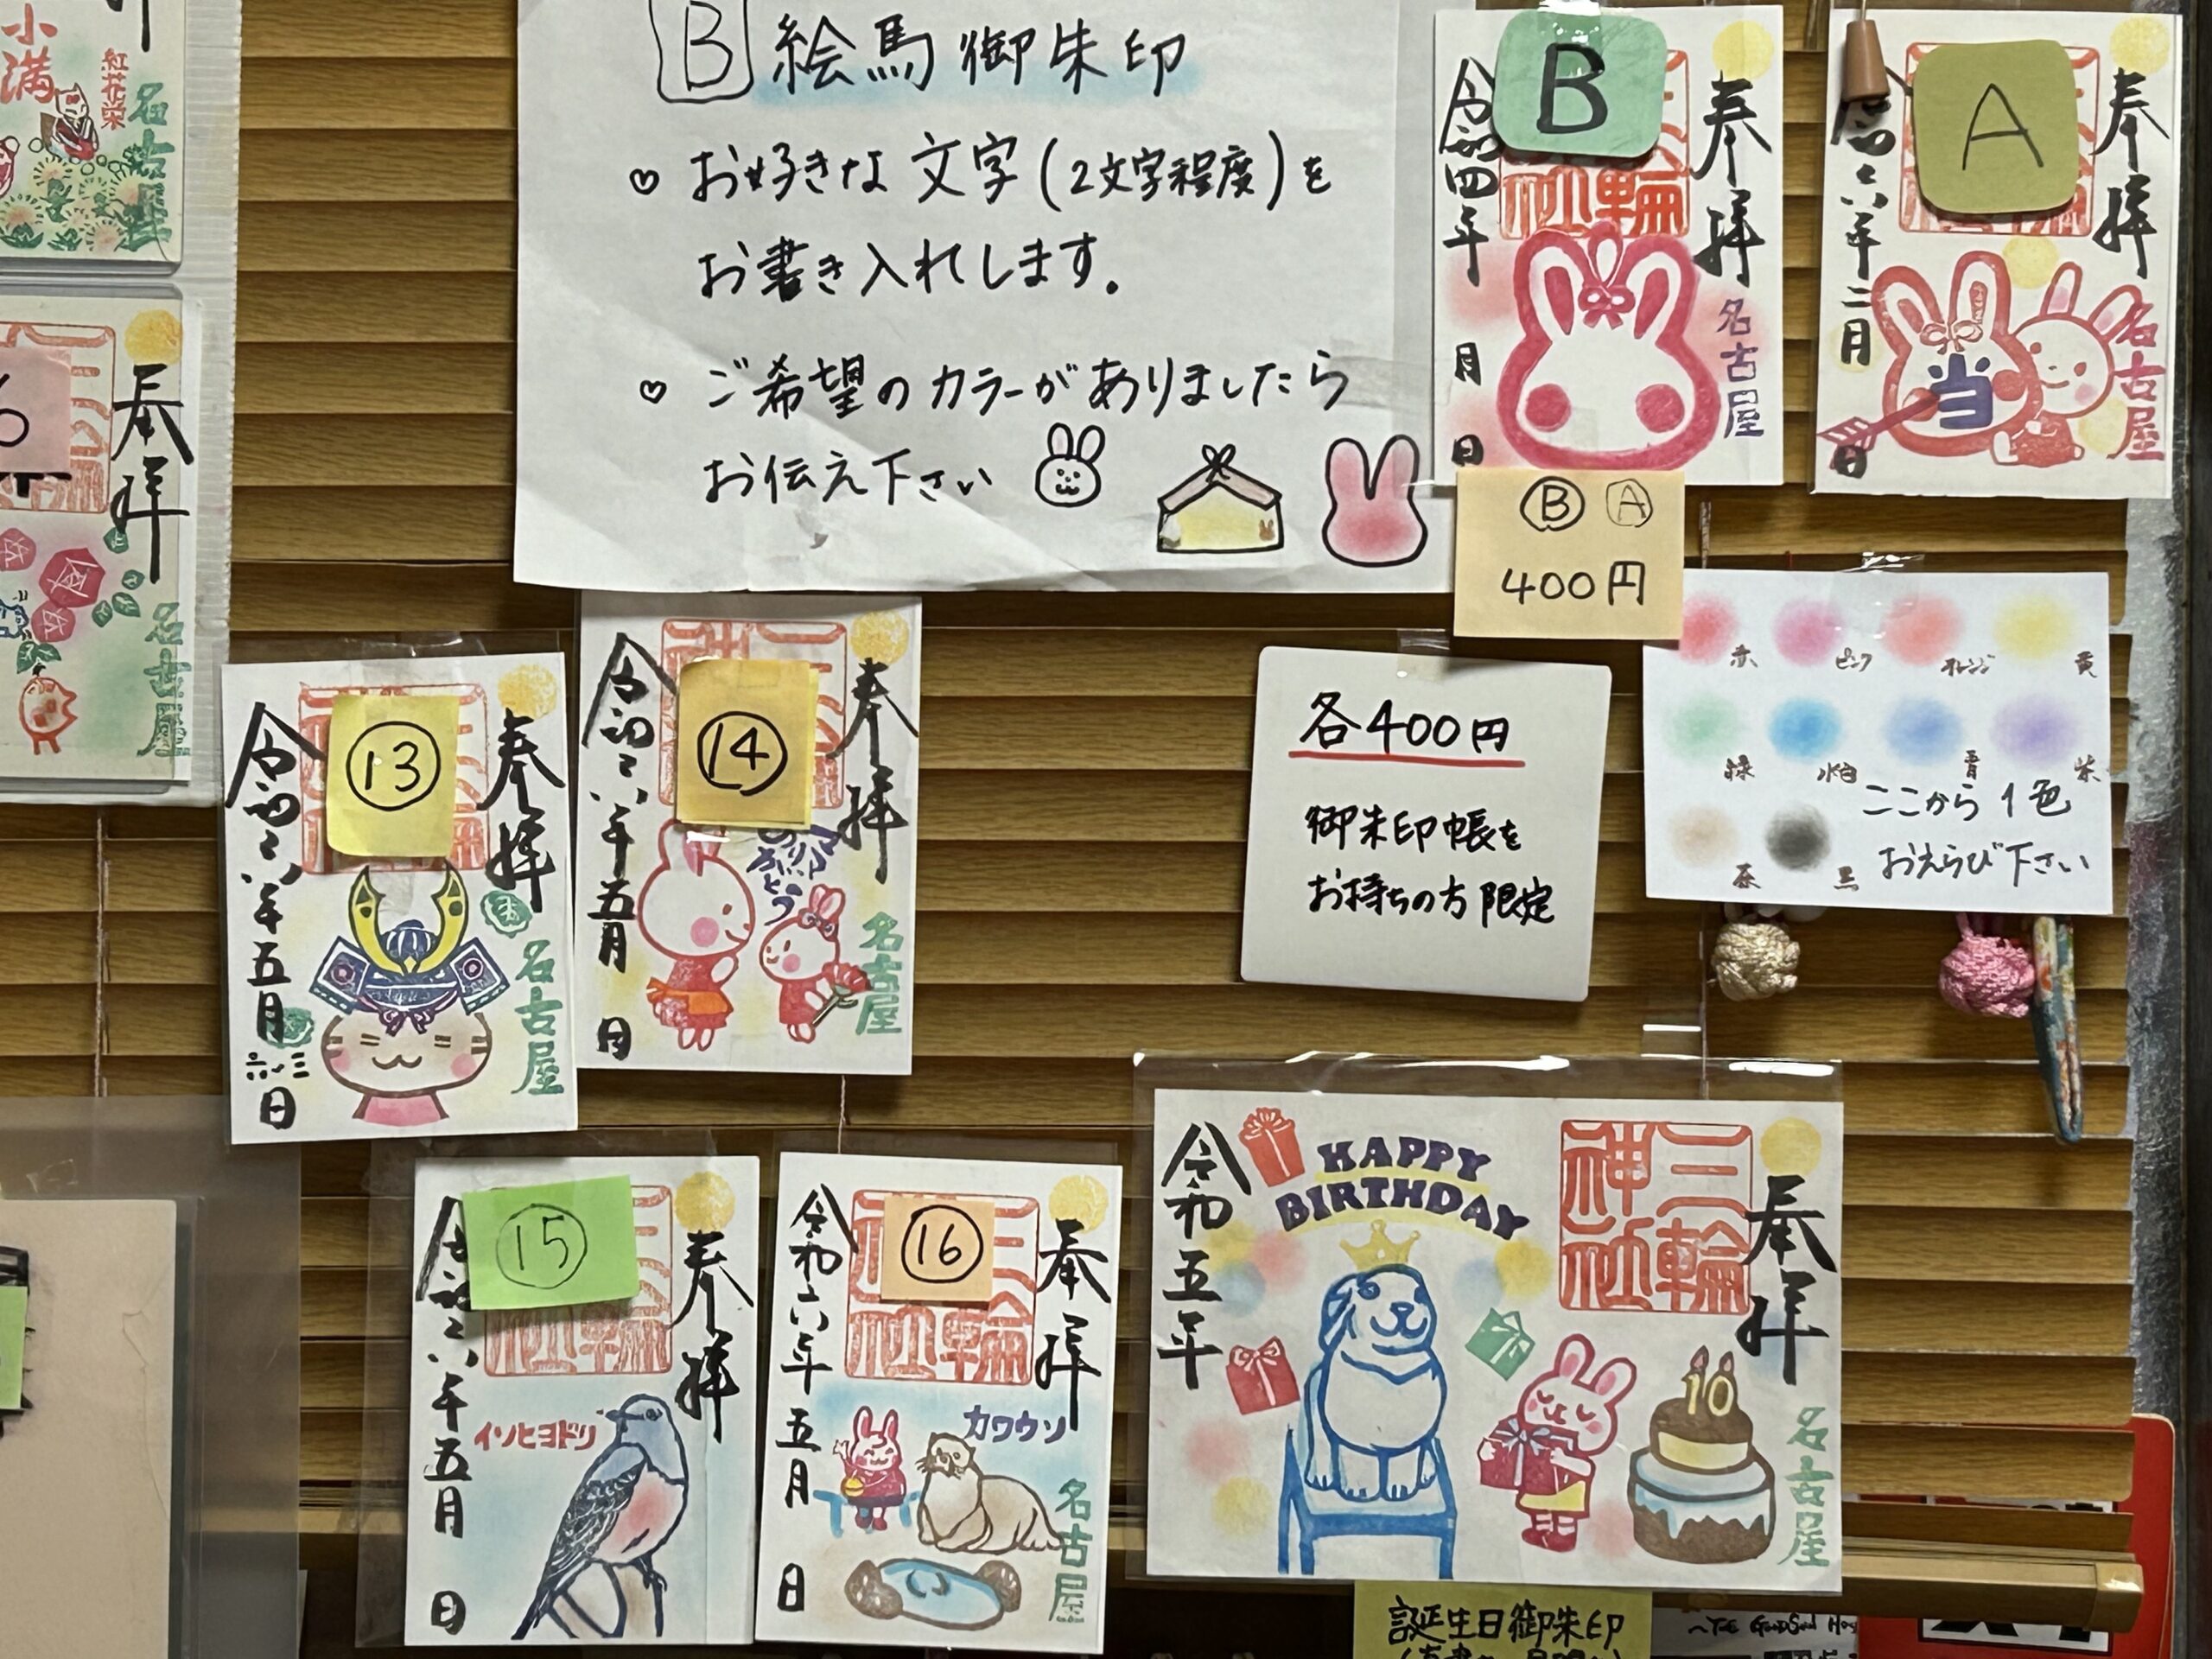 小満
紅花栄
名古屋
奉拝
名古屋
B 絵馬御朱印
♡ お好きな文字(2文字程度)を
お書き入れします。
♡ ご希望のカラーがありましたら
お伝え下さい
B
奉拝
令和四年 月 日
名古屋
A
奉拝
令和六年二月 日
当
名古屋
Ⓑ Ⓐ
400円
各400円
御朱印帳を
お持ちの方限定
赤 ピンク オレンジ 黄
緑 水色 青 紫
茶 黒
ここから1色
おえらび下さい
⑬
奉拝
令和六年五月 日
名古屋
⑭
奉拝
令和六年五月 日
ありがとう
名古屋
⑮
奉拝
令和六年五月 日
イソヒヨドリ
⑯
奉拝
三輪神社
令和六年五月 日
カワウソ
名古屋
奉拝
三輪神社
HAPPY
BIRTHDAY
令和五年
10
名古屋
誕生日御朱印